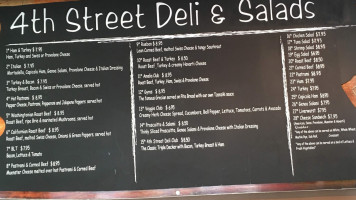 4th Street Deli & Salads
1* Ham & Turkey $ 7.95
Ham, Turkey and Swiss or Provolone Cheese
2* Italian $ 7.95
Mortadella, Capicola Ham, Genoa Salami, Provolone Cheese & Italian Dressing
3* Turkey & Bacon $ 7.95
Turkey Breast, Bacon & Swiss or Provolone Cheese, served hot
4* Hot Pastrami $ 8.95
Pepper Cheese, Pastrami, Peppercini and Jalapeno Peppers served hot
5* Roast Beef $ 8.95
Roast Beef, Pepr Brie & marinated Mushrooms, served hot
6* Californian Roast Beef $8.95
Roast Beef, melted Swiss Cheese, Onions & Green Peppers served hot
7* BLT $ 7.95
Bacon, Lettuce & Tomato
8* Pastrami & Corned Beef $8.95
Muenster Cheese melted over hot Pastrami & Corned Beef
9* Reuben $ 8.95
Lean Corned Beef, melted Swiss Cheese & tangy Sauerkraut
10* Roast Beef & Turkey $ 8.50
Roast Beef, Turkey and creamy Havarti Cheese
11* Amelia Club $ 8.95
Roast Beef, Turkey, Ham, Swiss & Provolone Cheese
12* Gyros $ 8.95
The famous Grecian served on Pita Bread with our own Tzatziki sauce
13* Veggie Club $ 8.95
Creamy Herb Cheese Spread, Cucumbers, Bell Pepper, Lettuce, Tomatoes, Carrots & Avocado
14* Prosciutto & Salami $ 8.50
Thinly Sliced Prosciutto, Genoa Salami & Provolone Cheese with Italian Dressing
15* 4th Street Deli Club $8.50
The Classic Triple Decker with Bacon, Turkey Breast & Ham
16* Chicken Salad $7.95
17* Tuna Salad $7.95
18* Shrimp Salad $8.95
19* Egg Salad $6.95
20* Roast Beef $8.50
21* Corned Beef $8.95
22* Pastrami $8.95
23* Ham $7.95
24* Turkey $7.95
25* Capicola Ham $8.95
26* Genoa Salami $7.95
27* Liverwurst $7.95
28* Cheese Sandwich $7.95